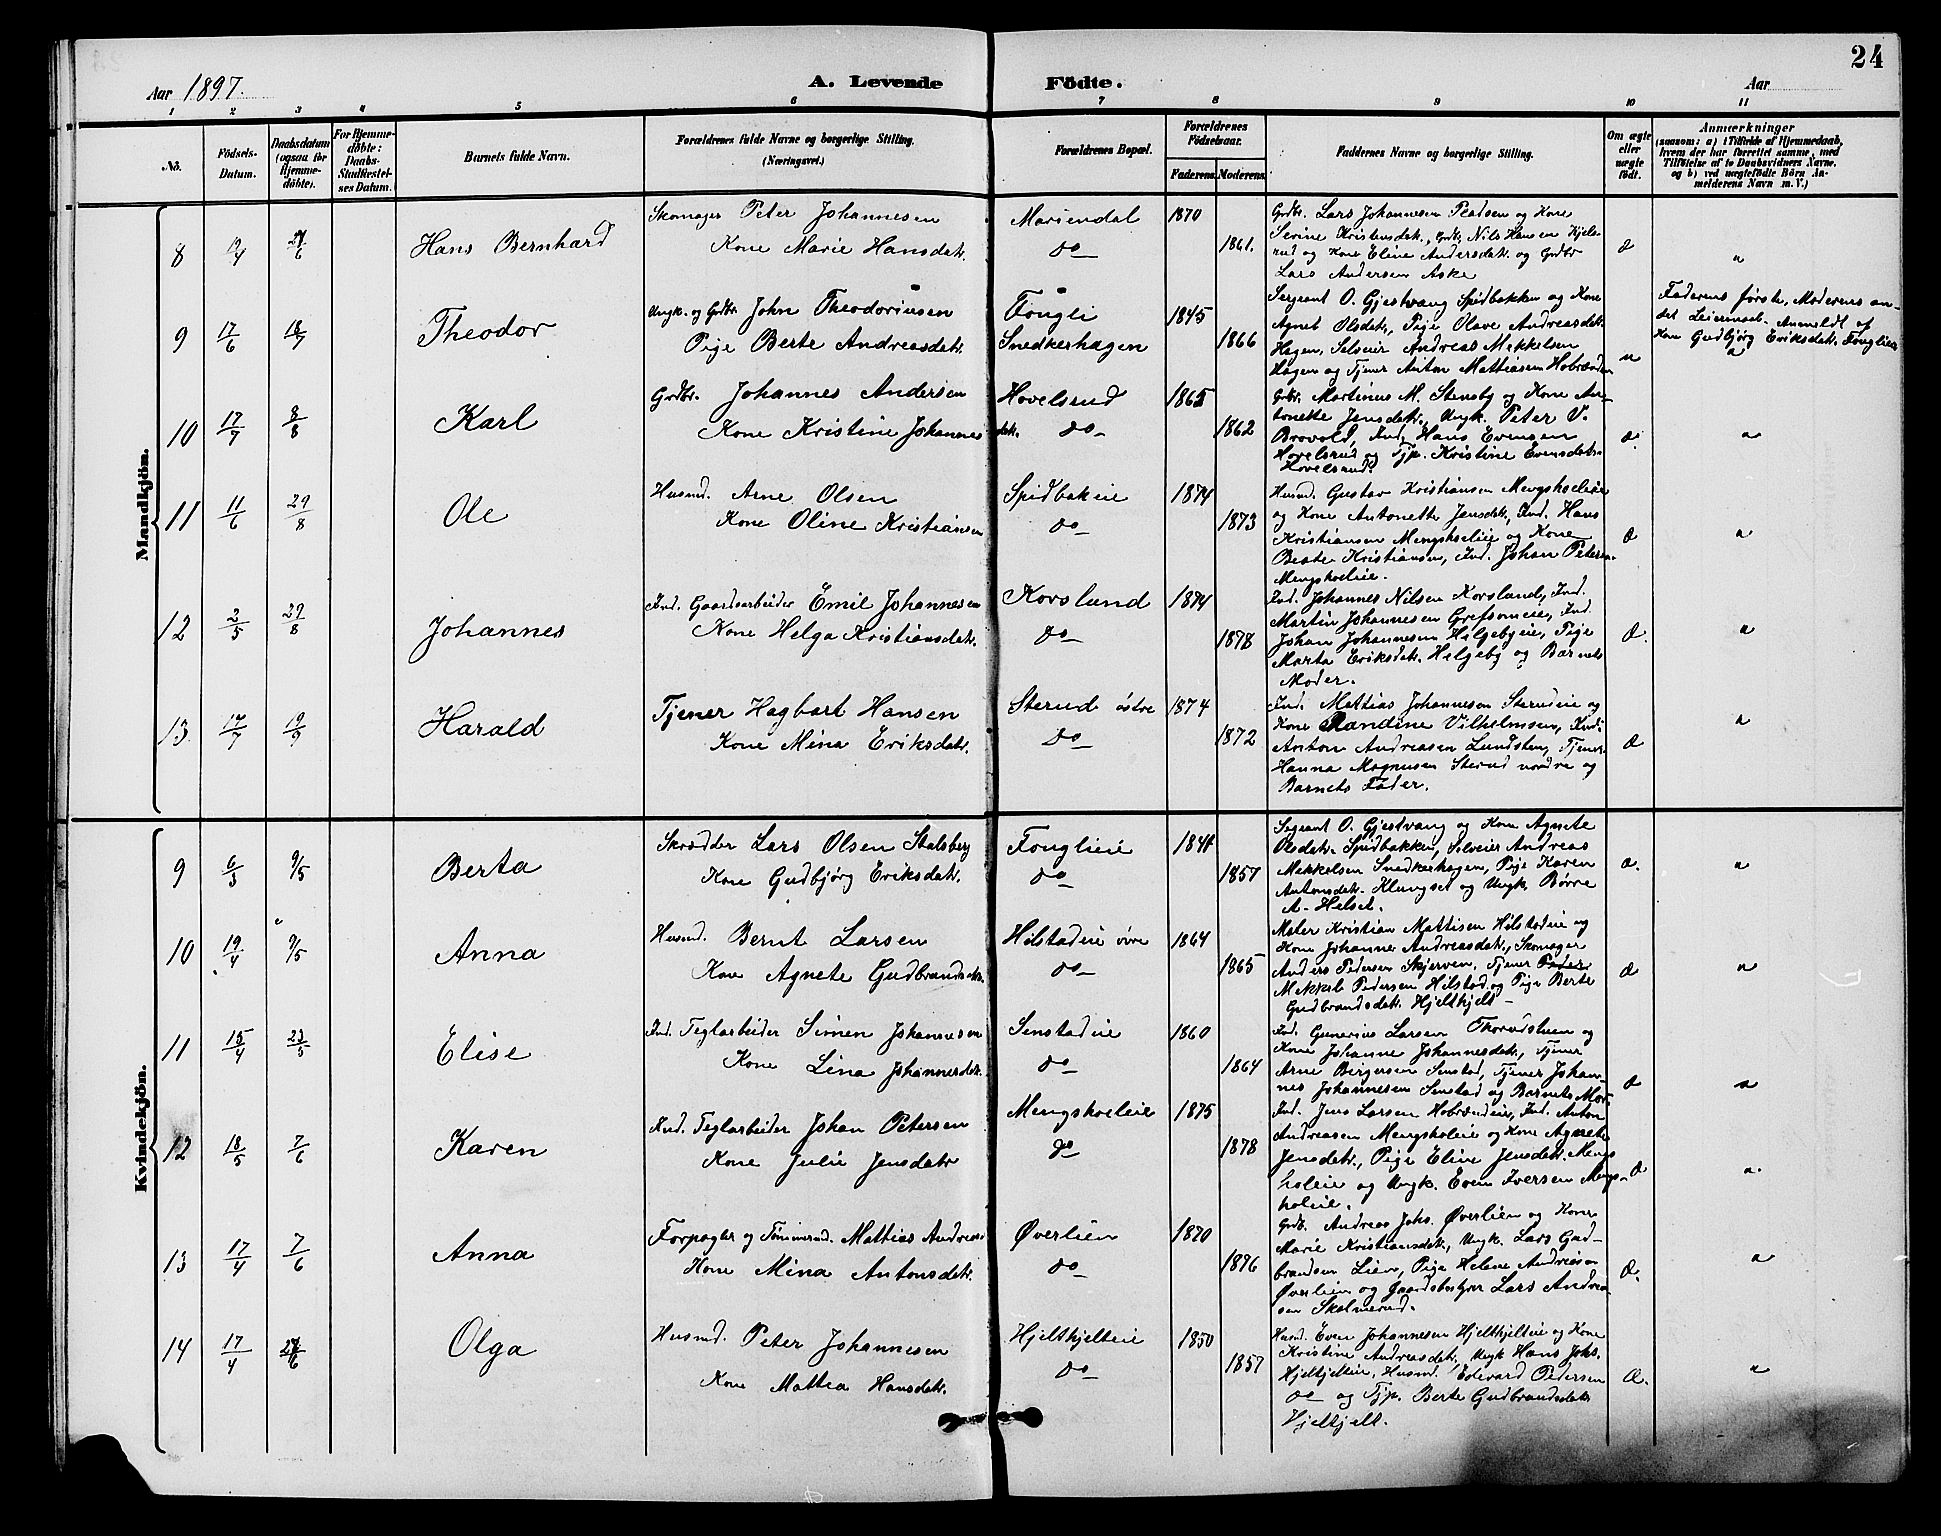 24
Aar 1897.
A. Levende Födte.
Aar
1 2 3 4 5 6 7 8 9 10 11
No.
Födsels-Datum.
Daabsdatum (ogsaa for Hjemmedöbte).
For Hjemmedöbte: Daabs-Stadfæstelses Datum.
Barnets fulde Navn.
Forældrenes fulde Navne og borgerlige Stilling. (Næringsvei.)
Forældrenes Bopæl.
Forældrenes Födselsaar.
Faderens. Moderens.
Faddernes Navne og borgerlige Stilling.
Om ægte eller uægte födt.
Anmærkninger
(saasom: a) i Tilfælde af Hjemmedaab, hvem der har forrettet samme, med Tilföielse af to Daabsvidners Navne, og b) ved uægtefödte Börn Anmelderens Navn m. V.)
Mandkjön.
8
Hans Bernhard
Skomager Peter Johannesen
Kone Marie Hansdatr.
Mariendal
do
1870
1861.
Grdbr. Lars Johannesen og Kone
Serine Kristensdatr., Grdbr. Nils Hansen Kjelsrud og Kone Eline Andersdatr. og Grdbr
Lars Andersen Aske
9 17/6 18/7
Theodor
Ungk. og Grdbr. John Theodoriusen
Pige Berte Andreasdatr.
Fougli
Snedkerhagen
1845
1866
Sergeant O. Gjestvang Spidbakken og Kone
Agnet Olsdatr., Pige Olave Andreasdatr.
Hagen, Selveier Andreas Mekkelsen
Hagen og Tjener Anton Mattiasen
Faderens første, Moderens andet Leiermaal. Anmeldt af
Kone Gudbjørg Eriksdatr. Fouglien
10 17/7 8/8
Karl
Grdbr. Johannes Andersen
Kone Kristine Johannesdatr.
Hovelsrud
do
1865
1862
Grbr. Martinus M. Stensby og Kone Antonette Jensdatr., Ungk. Peter V.
Brovold, Ind. Hans Evensen
Hovelsrud og Tjp. Kristine Evensdatr.
Hovelsrud.
11 11/6 29/8
Ole
Husmd. Arne Olsen
Kone Oline Kristiansen
Spidbakeie
do
1874
1873
Husmd. Gustav Kristiansen Mengsholeie
og Kone Antonette Jensdatr., Ind. Hans
Kristiansen Mengsholeie og Kone
Beate Kristiansen, Ind. Johan Petersen
Mengsholeie.
12 2/5 29/8
Johannes
Ind. Gaardsarbeider Emil Johannesen
Kone Helga Kristiansdatr.
Korslund
do
1874
1878
Ind. Johannes Nilsen Korslund, Ind.
Martin Johannesen Grefsomeie, Ind.
Johan Johannesen Hilgebyeie, Pige
Marta Eriksdatr. Helgeby og Barnets
Moder.
13 17/7 19/9
Harald
Tjener Hagbart Hansen
Kone Mina Eriksdatr.
Sterud østre
do
1874
1872
Ind. Mattias Johannesen Sterudeie og
Kone Randine Vilhelmsen, Ind.
Anton Andreasen Lundsten, Tjener
Hanna Magnusen Sterud nordre og
Barnets Fader.
Kvindekjön.
9 6/3 9/5
Berta
Skrædder Lars Olsen Stalsberg
Kone Gudbjørg Eriksdatr.
Fouglieie
do
1841
1857
Sergeant O. Gjestvang og Kone Agnete
Olsdatr. Spidbakken, Selveier Andreas
Mekkelsen Snedkerhagen, Pige Karen
Antonsdatr. Klungset og Ungk. Børre
A. Helset.
10 19/4 9/5
Anna
Husmd. Bernt Larsen
Kone Agnete Gudbrandsdatr.
Hilstadeie øvre
do
1864
1865
Maler Kristian Mattisen Hilstadeie og
Kone Johanne Andreasdatr., Skomager
Anders Pedersen Skjerven, Tjener Peder
Mekkel Pedersen Hilstad og Pige Berte
Gudbrandsdatr. Hjelthjelt
11 15/4 23/5
Elise
Ind. Teglarbeider Simen Johannesen
Kone Lina Johannesdatr.
Senstadeie
do
1860
1864
Ind. Gunerius Larsen Thorudstuen og
Kone Johanne Johannesdatr., Tjener
Arne Bergersen Senstad, Tjener Johannes Johannesen Senstad og Barnets Mor
12 18/5 7/6
Karen
Ind. Teglarbeider Johan Petersen
Kone Julie Jensdatr
Mengsholeie
do
1875
1878
Ind. Jens Larsen Hobrændeie, Ind. Anton
Andreasen Mengsholeie og Kone Agnete
Jensdatr., Pige Eline Jensdatr. Mengsholeie og Ungk. Even Iversen Mengsholeie.
13 17/4 7/6
Anna
Forpagter og Tømmermd. Mattias Andreasen
Kone Mina Antonsdatr.
Øverlien
do
1870
1876
Grdb. Andreas Johs. Øverlien og Kone
Marie Kristiansdatr., Ungk. Lars Gudbrandsen Lien, Pige Helene Andreasen
Øverlien og Gaardsbestyrer Lars Andreasen Skolmerud.
14 17/4
Olga
Husmd. Peter Johannesen
Kone Mattea Hansdatr.
Hjelthjelteie
do
1850
1857
Husmd. Even Johannesen Hjelthjelteie og Kone
Kristine Andreasdatr., Ungk Hans Johs.
Hjelthjelteie, Husmd. Edevard Pedersen
do og Tjp. Berte Gudbrandsdatr
Hjelthjelt.